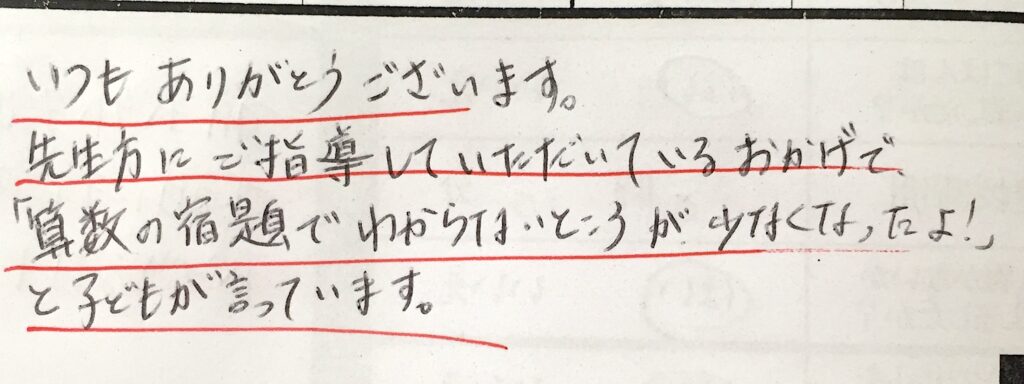 いつも ありがとうございます。
先生方に ご指導していただいているおかげで、
「算数の宿題で わからないところが 少なくなったよ!」
と子どもが言っています。